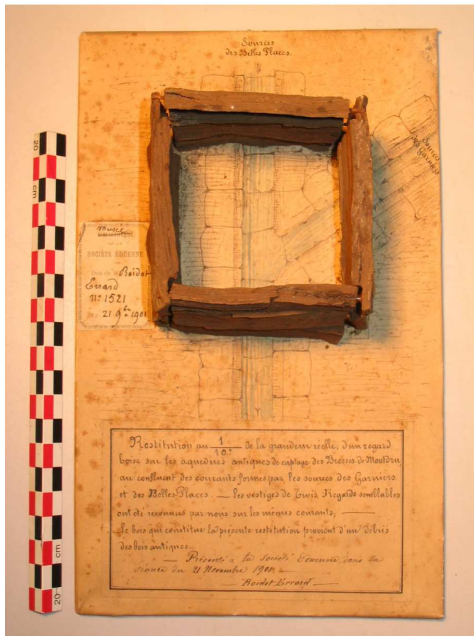 Sources
des Belles Places.
Sources
des Garniers
20
cm
Musée
SOCIÉTÉ EDUENNE
Boidot
Errard
N° 1521
21 9bre 1901
Restitution au 1/10e de la grandeur réelle, d'un regard
boisé sur les aqueducs antiques de captage des Bréores de Montdru
au confluent des courants formés par les sources des Garniers
et des Belles Places. — les vestiges de trois Regards semblables
ont été reconnus par nous sur les mêmes courants, —
Le bois qui constitue la présente restitution provient d'un débris
des bois antiques —
— Présenté à la Société Eduenne dans la
séance du 21 Novembre 1901 —
Boidot Errard —
cm
20